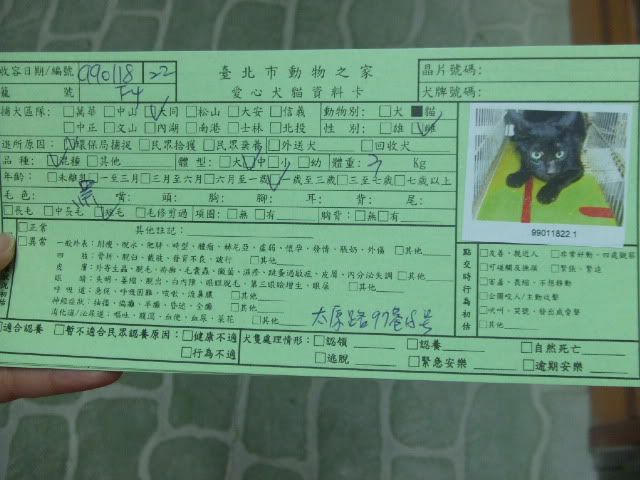 收容日期/編號 990118 22 臺北市動物之家 晶片號碼:
籠 號 F4 愛心犬貓資料卡 犬牌號碼:
捕犬區隊: □萬華 □中山 ☑大同 □松山 □大安 □信義 動物別: □犬 ■貓
□中正 □文山 □內湖 □南港 □士林 □北投 性 別: □雄 ☑雌
進所原因: ☑環保局捕捉 □民眾拾獲 □民眾棄養 □外送犬 □回收犬
品種: ☑混種 □其他 體型: □大 ☑中 □小 □幼 體重: Kg
年齡: □未離乳 □一至三月 □三至六月 □六月至一歲 ☑一歲至三歲 □三至七歲 □七歲以上
毛色: 黑 嘴: 頭: 胸: 腳: 耳: 背: 尾:
□長毛 □中長毛 ☑短毛 □毛修剪過 項圈: □無 □有 胸背: □無 □有
99011822 1
□正常 其他註記:
□異常 一般外表: 肘瘦、脫水、肥胖、畸型、腫瘤、赫尼亞、虛弱、懷孕、發情、脹奶、外傷 □其他
四 肢: 骨折、脫臼、截肢、發育不良、跛行 □其他
皮 膚: 外寄生蟲、脫毛、疥癬、毛囊蟲、黴菌、濕疹、跳蚤過敏症、皮屑、內分泌失調 □其他
眼 睛: 失明、萎縮、脫出、白內障、眼瞼脫毛、第三眼瞼增生、眼屎 □其他
呼吸道: 急促、呼吸困難、咳嗽、流鼻膿 □其他
神經症狀: 抽搐、偏癱、半癱、昏迷、全癱 □其他
消化道/泌尿道: 嘔吐、腹瀉、血便、血尿、菜花 □其他 太原路97巷15號
點交時行為初估
□友善、親近人 □非常好動、四處觀察
□可碰觸及撫摸 □緊張、警戒
□害羞、畏縮、不想移動
□企圖咬人/主動攻擊
□吠叫、哭號、發出威脅聲
□其他
□適合認養 □暫不適合民眾認養原因: □健康不適 犬隻處理情形: □認領 □認養 □自然死亡
□行為不適 □逃脫 □緊急安樂 □逾期安樂